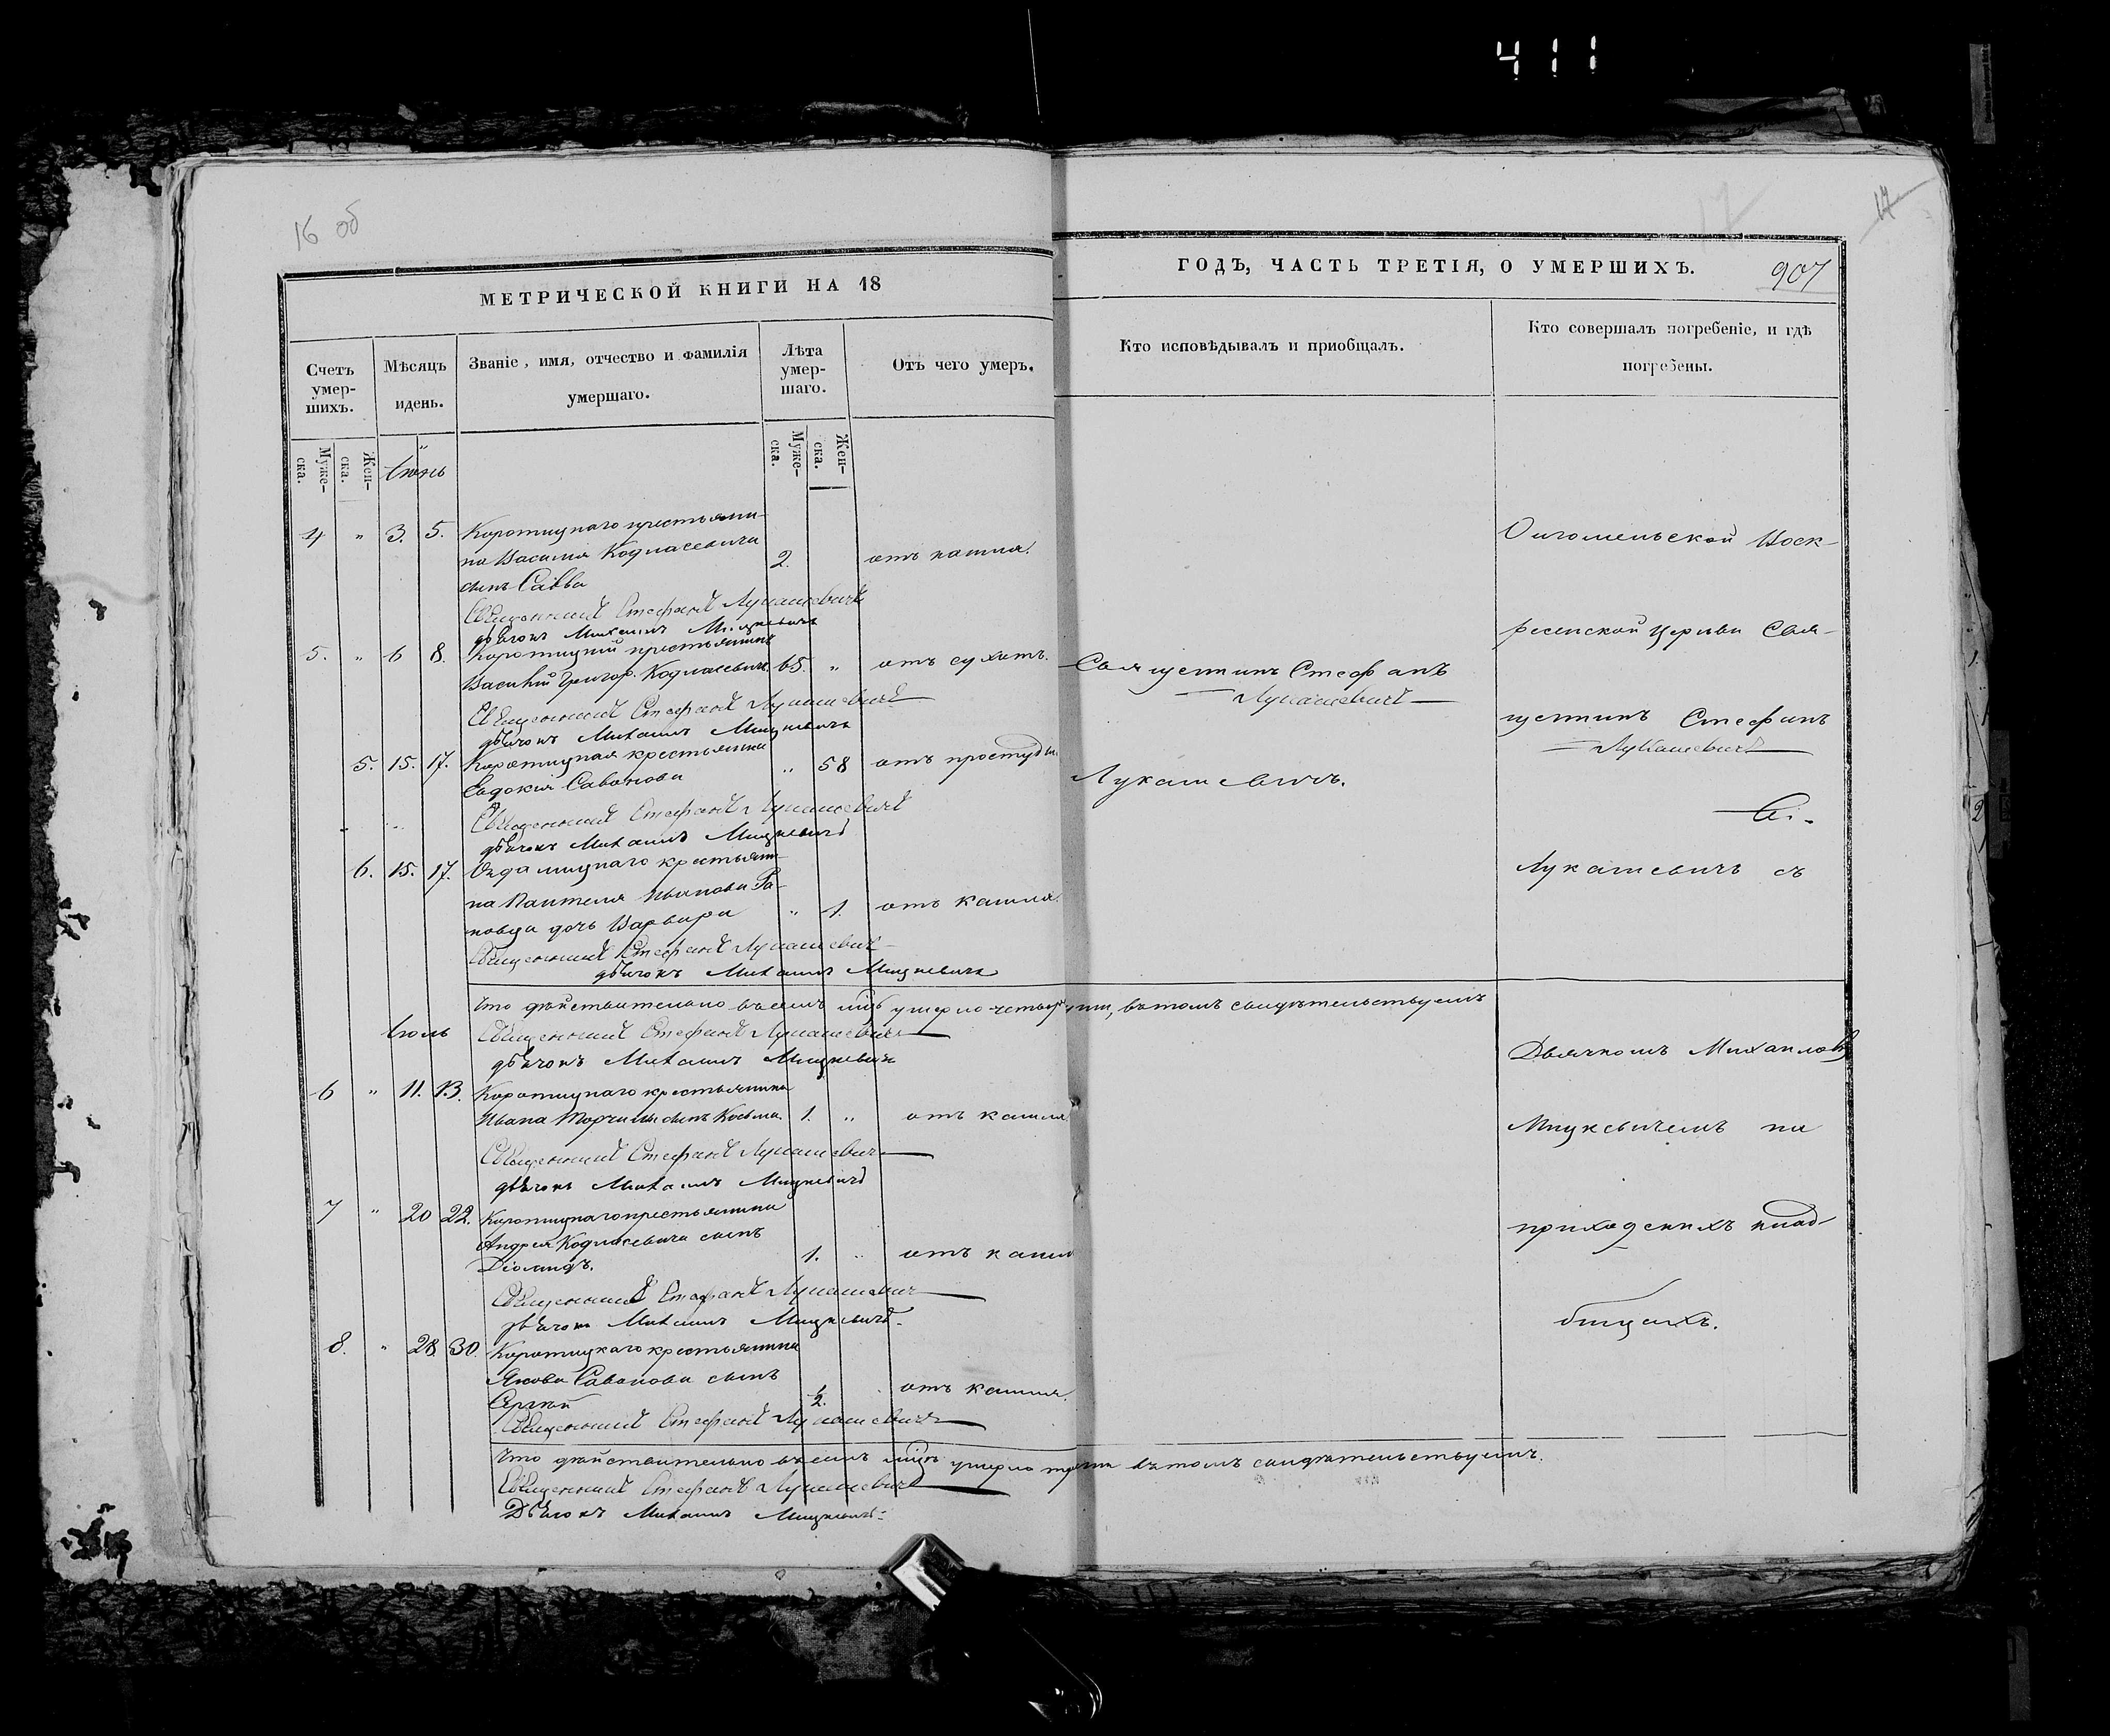 411
16 об
17
17
МЕТРИЧЕСКОЙ КНИГИ НА 18
ГОДЪ, ЧАСТЬ ТРЕТІЯ, О УМЕРШИХЪ.
907
Счетъ умер-шихъ.
Мѣсяцъ идень.
Званіе, имя, отчество и фамилія умершаго.
Лѣта умер-шаго.
Отъ чего умеръ.
Кто исповѣдывалъ и приобщалъ.
Кто совершалъ погребеніе, и гдѣ погребены.
Муже-ска.
Жен-ска.
Муже-ска.
Жен-ска.
Іюнь
4 " 3. 5. Коротицкаго крестьяни-
на Василія Кодласевича 2. отъ кашля.
сынъ Савва
Священникъ Стефанъ Лукашевичъ
дьячокъ Михаилъ Мицкевичъ
5. " 6 8. Коротицкій крестьянинъ
Василій Григор. Кодласевичъ 65. " отъ сухотъ.
Священникъ Стефанъ Лукашевичъ
дьячокъ Михаилъ Мицкевичъ
5. 15. 17. Коротицкая крестьянка
Евдокія Савонова " 58 отъ простуды.
Священникъ Стефанъ Лукашевичъ
дьячокъ Михаилъ Мицкевичъ
6. 15. 17. крестьяни-
на Пантелея Иванова Ра-
новца дочь Варвара " 1. отъ кашля.
Священникъ Стефанъ Лукашевичъ
дьячокъ Михаилъ Мицкевичъ
Что дѣйствительно въ семъ м-цѣ умерло четыри, въ томъ свидѣтельствуемъ
Священникъ Стефанъ Лукашевичъ
дьячокъ Михаилъ Мицкевичъ
Іюль
6 " 11. 13. Коротицкаго крестьянина
Ивана сынъ Косьма 1. " отъ кашля
Священникъ Стефанъ Лукашевичъ
дьячокъ Михаилъ Мицкевичъ
7 " 20 22. Коротицкаго крестьянина
Андрея Кодласевича сынъ
Діомидъ. 1. " отъ кашля
Священникъ Стефанъ Лукашевичъ
дьячокъ Михаилъ Мицкевичъ.
8. " 28 30. Коротицкаго крестьянина
Якова Савонова сынъ
Сергій 1/2. отъ кашля.
Священникъ Стефанъ Лукашевичъ
Что дѣйствительно въ семъ м-цѣ умерло трехъ въ томъ свидѣтельствуемъ.
Священникъ Стефанъ Лукашевичъ
Дьячокъ Михаилъ Мицкевичъ.
Священникъ Стефанъ
Лукашевичъ
Лукашевичъ.
Ольгомельской Воск-
ресенской Церкви Свя-
щенникъ Стефанъ
Лукашевичъ
Лукашевичъ съ
Дьячкомъ Михаиломъ
Мицкевичемъ на
приходскихъ клад-
бищахъ.